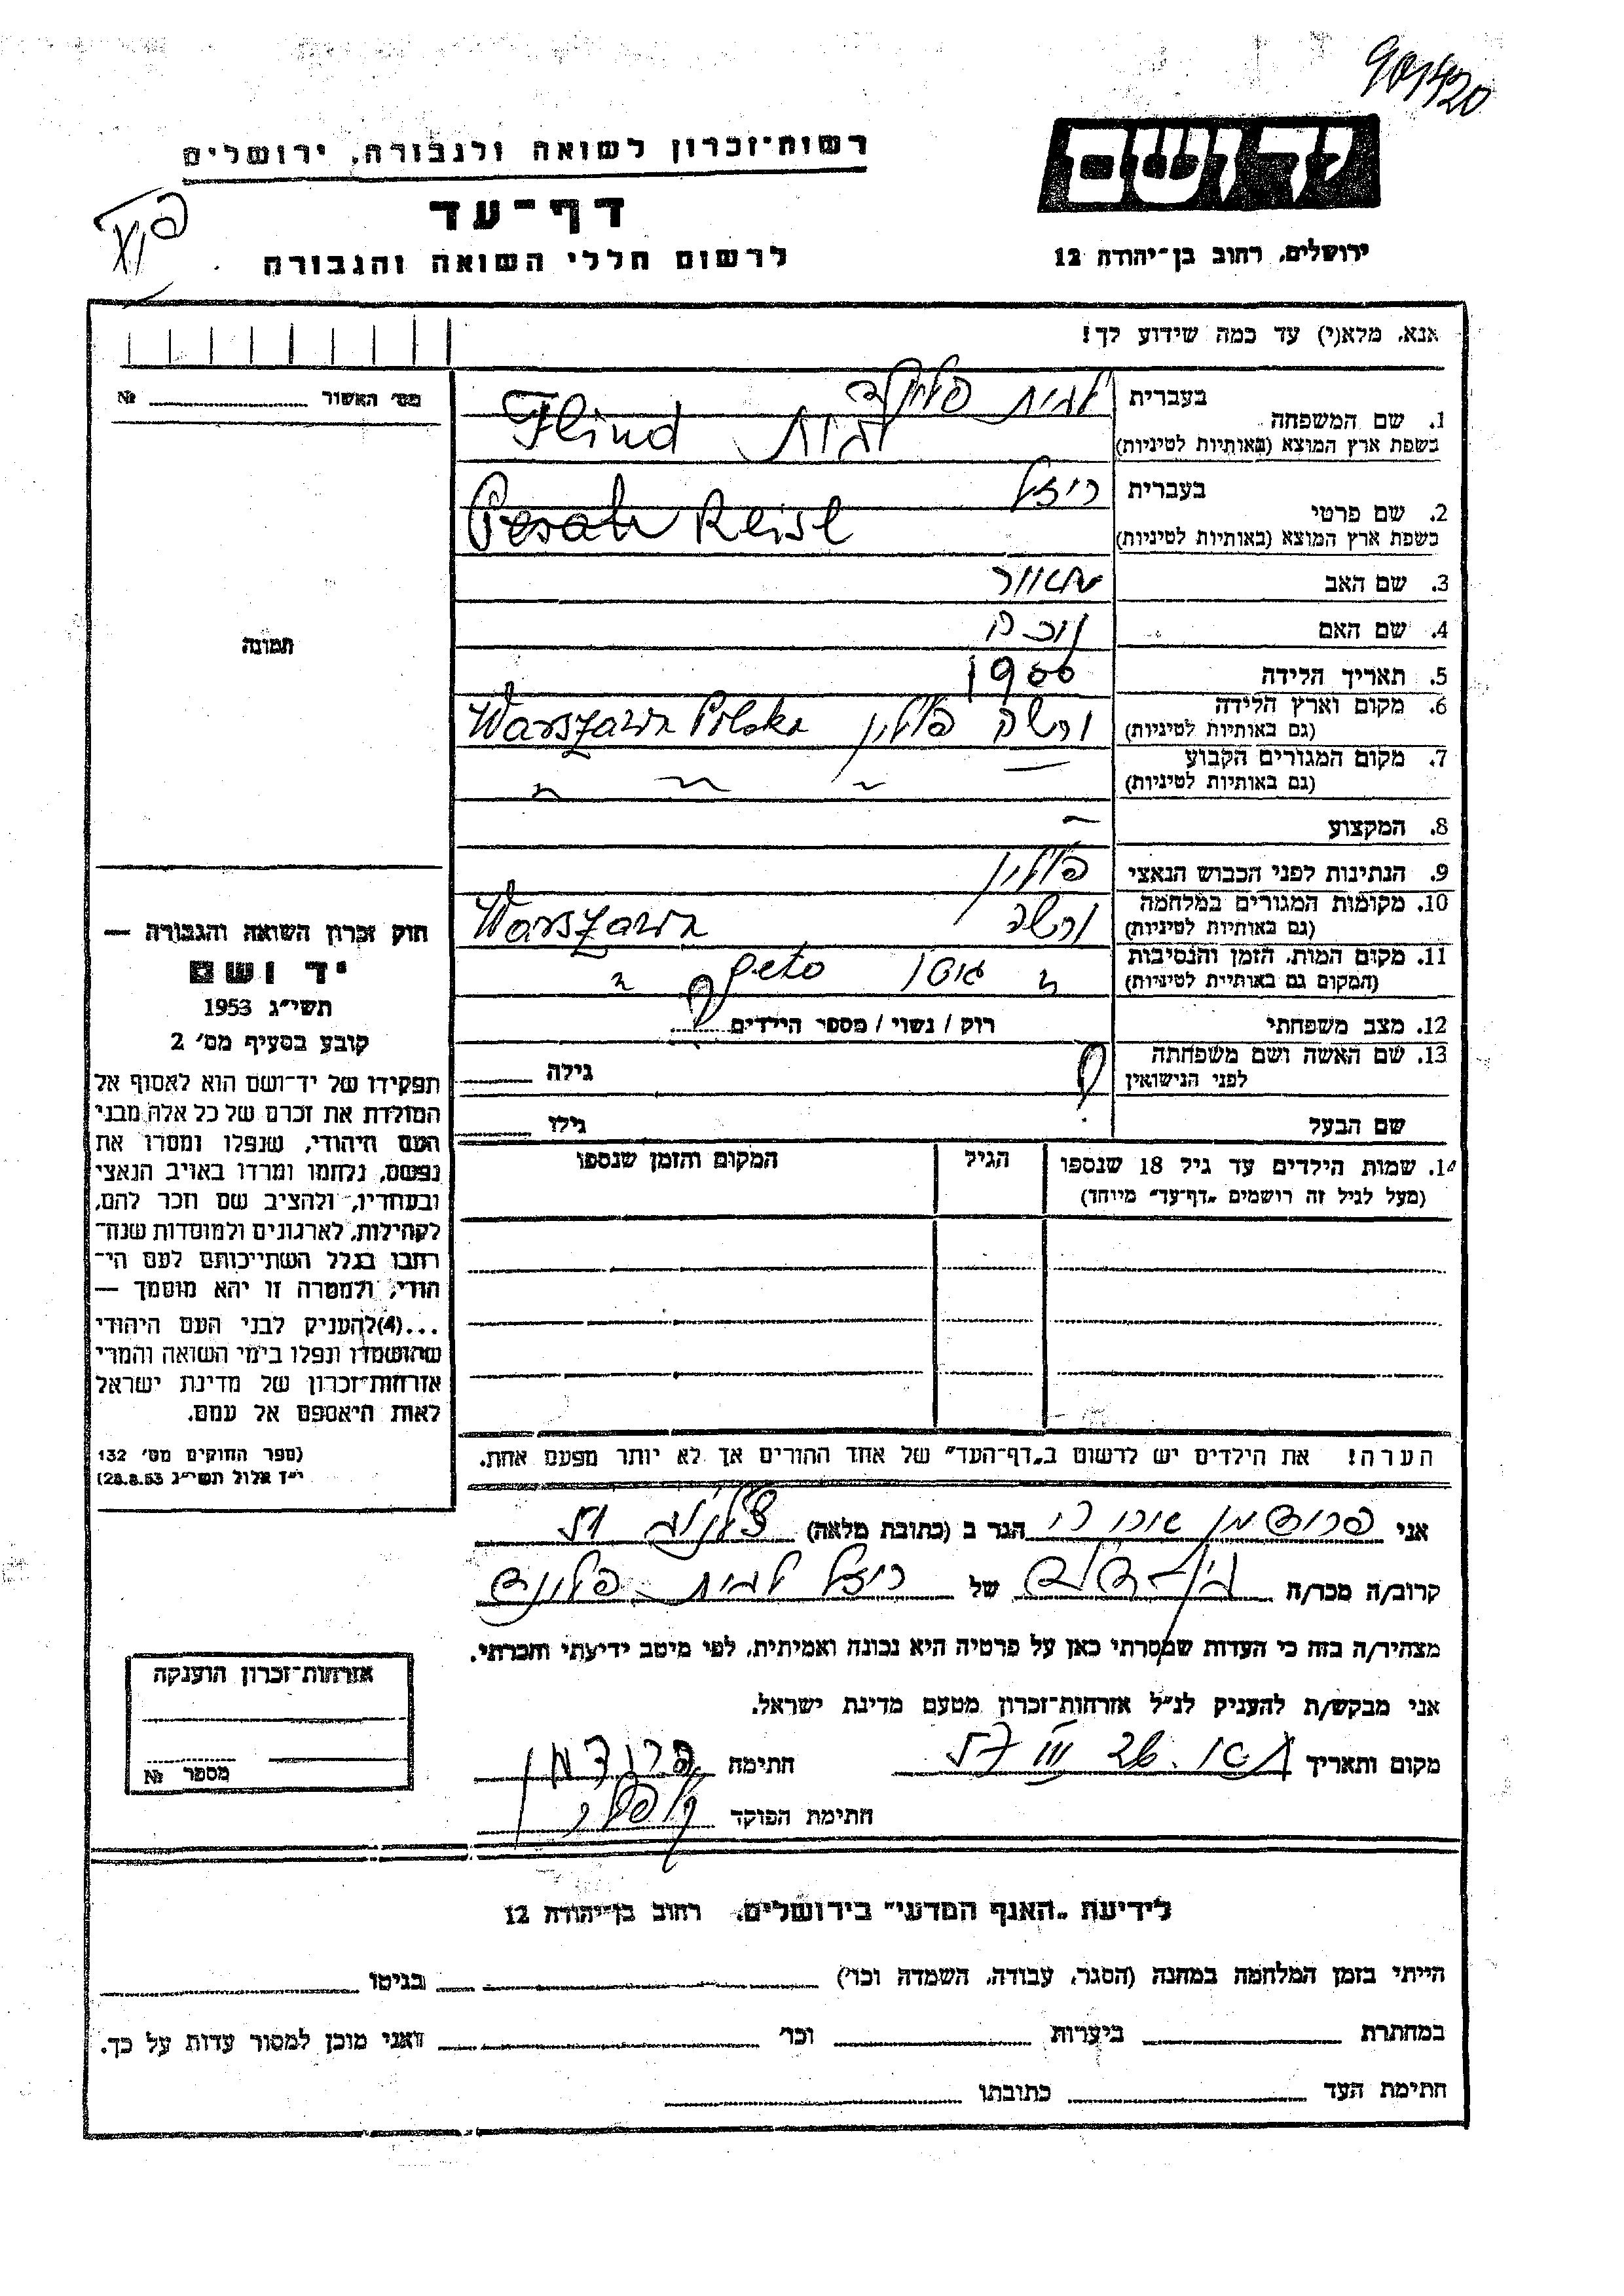 901420
יד ושם
ירושלים, רחוב בן־יהודה 12
רשות־זכרון לשואה ולגבורה, ירושלים
דף־עד
לרשום חללי השואה והגבורה
אנא, מלא(י) עד כמה שידוע לך!
מס׳ האשור № 
1. שם המשפחה בעברית לבית פלינד
בשפת ארץ המוצא (באותיות לטיניות) לבית Flind
2. שם פרטי בעברית רייזל
בשפת ארץ המוצא (באותיות לטיניות) Pesah Reisl
3. שם האב
4. שם האם
5. תאריך הלידה 1900
6. מקום וארץ הלידה ורשה פולין Warszawa Polska
(גם באותיות לטיניות)
7. מקום המגורים הקבוע
(גם באותיות לטיניות)
8. המקצוע —
9. הנתינות לפני הכבוש הנאצי פולין
10. מקומות המגורים במלחמה ורשה Warszawa
(גם באותיות לטיניות)
11. מקום המות, הזמן והנסיבות גיטו geto
(המקום גם באותיות לטיניות)
12. מצב משפחתי רוק / נשוי / מספר הילדים
13. שם האשה ושם משפחתה גילה
לפני הנישואין
שם הבעל גילו
14. שמות הילדים עד גיל 18 שנספו הגיל המקום והזמן שנספו
(מעל לגיל זה רושמים „דף־עד״ מיוחד)
הערה! את הילדים יש לרשום ב„דף־העד״ של אחד ההורים אך לא יותר מפעם אחת.
תמונה
חוק זכרון השואה והגבורה —
יד ושם
תשי״ג 1953
קובע בסעיף מס׳ 2
תפקידו של יד־ושם הוא לאסוף אל
המולדת את זכרם של כל אלה מבני
העם היהודי, שנפלו ומסרו את
נפשם, נלחמו ומרדו באויב הנאצי
ובעוזריו, ולהציב שם וזכר להם,
לקהילות, לארגונים ולמוסדות שנח־
רבו בגלל השתייכותם לעם הי־
הודי, ולמטרה זו יהא מוסמך —
...(4) להעניק לבני העם היהודי
שהושמדו ונפלו בימי השואה והמרי
אזרחות־זכרון של מדינת ישראל
לאות היאספם אל עמם.
(ספר החוקים מס׳ 132
י״ז אלול תשי״ג 28.8.53)
אני הגר ב (כתובת מלאה)
קרוב/ה מכר/ה של רייזל לבית פלינד
מצהיר/ה בזה כי העדות שמסרתי כאן על פרטיה היא נכונה ואמיתית, לפי מיטב ידיעתי והכרתי.
אני מבקש/ת להעניק לנ״ל אזרחות־זכרון מטעם מדינת ישראל.
מקום ותאריך חתימה
חתימת הפוקד
אזרחות־זכרון הוענקה
מספר №
לידיעת „האגף המדעי״ בירושלים, רחוב בן־יהודה 12
הייתי בזמן המלחמה במחנה (הסגר, עבודה, השמדה וכו׳) בגיטו
במחתרת ביערות וכו׳ ואני מוכן למסור עדות על כך.
חתימת העד כתובתו